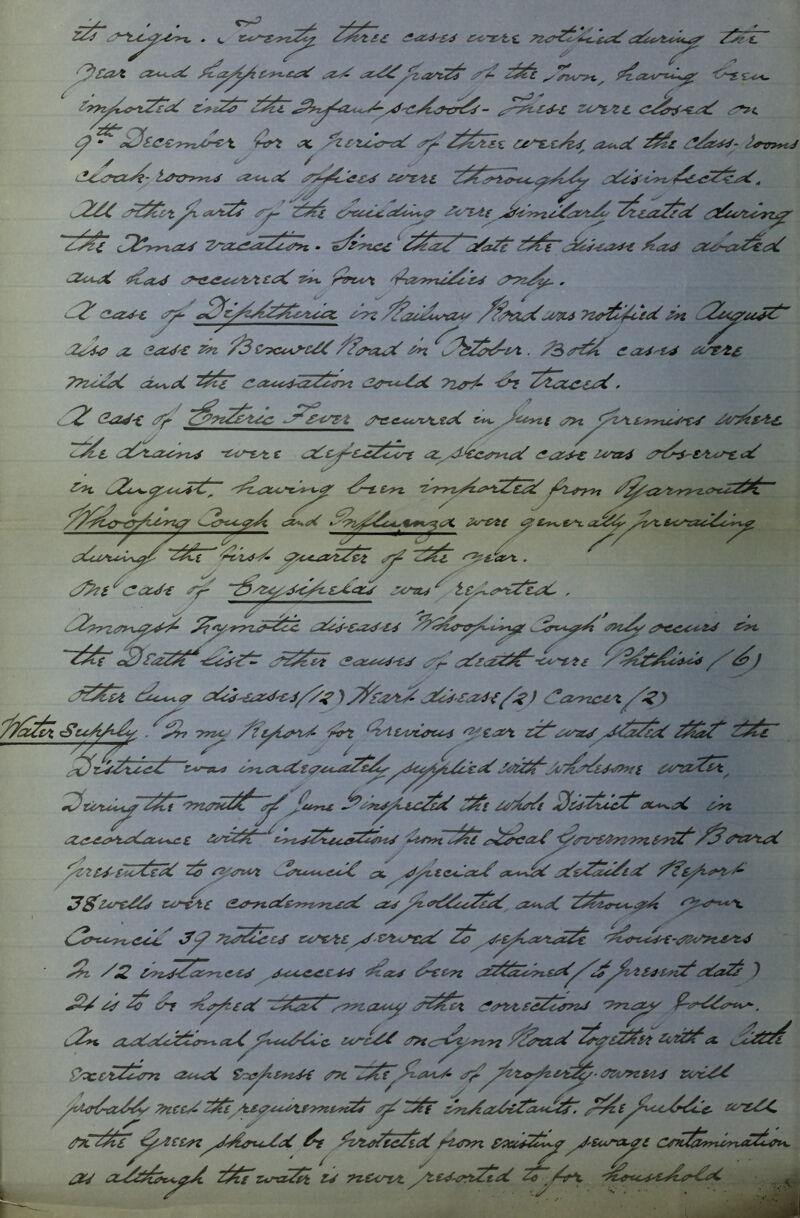 its origin. Twenty three cases were notified during the
Year and happened at all parts of the Town, having been
imported into the Infant-schools - These were closed on
9th December for a period of three weeks, and the class-rooms
cloak-rooms and offices were thoroughly disinfected.
All other parts of the building were similarly treated during
the Xmas vacation. Since that date the disease has abated
and has occurred in four families only.
A case of Diphtheria in Railway Road was notified in August
also a case in Bexwell Road in October. Both cases were
mild and the causation could not be traced.
A case of Enteric Fever occurred in June on premises where
the drains were defective a second case was observed
in August, having been imported from Yarmouth
Whooping Cough and Influenza were generally prevailing
during the first quarter of the year.
One case of Erysipelas was reported.
Amongst Zymotic diseases "Whooping Cough" only occurs in
the Death-list - other causes of death were Phthisis (6)
other lung diseases (12) Heart disease (2) Cancer (2)
Water Supply. In my Report for previous year it was stated that the
District was inadequately supplied with wholesome water,
During the month of June I inspected the whole District and in
accordance with instructions from the Local Government Board
presented to your Council a special and detailed Report
38 wells were condemned as polluted and through your
Council 39 notices were served to separate house-owners
In 12 instances success has been attained (to present date)
It is to be hoped that many other corrections may follow.
An additional public well on Lynn Road together with a little
exertion and expense on the part of property-owners will
probably meet the requirements of the inhabitants. The public well
on the Green should be protected from existing sewage contamination
as although the water is never resorted to for household